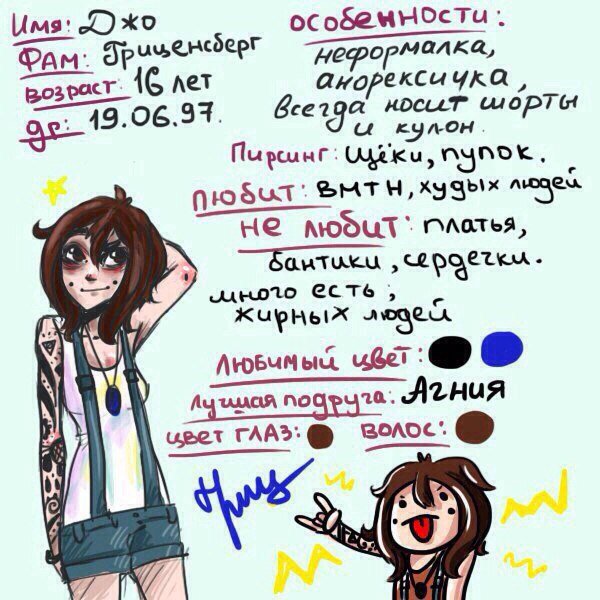 Имя: Джо
Фам: Гриценсберг
возраст: 16 лет
др: 19.06.97.
особенности:
неформалка,
анорексичка,
всегда носит шорты
и кулон.
Пирсинг: щёки, пупок.
любит: BMTH, худых людей
не любит: платья,
бантики, сердечки.
много есть;
жирных людей
любимый цвет:
лучшая подруга: Агния
цвет глаз:
волос: